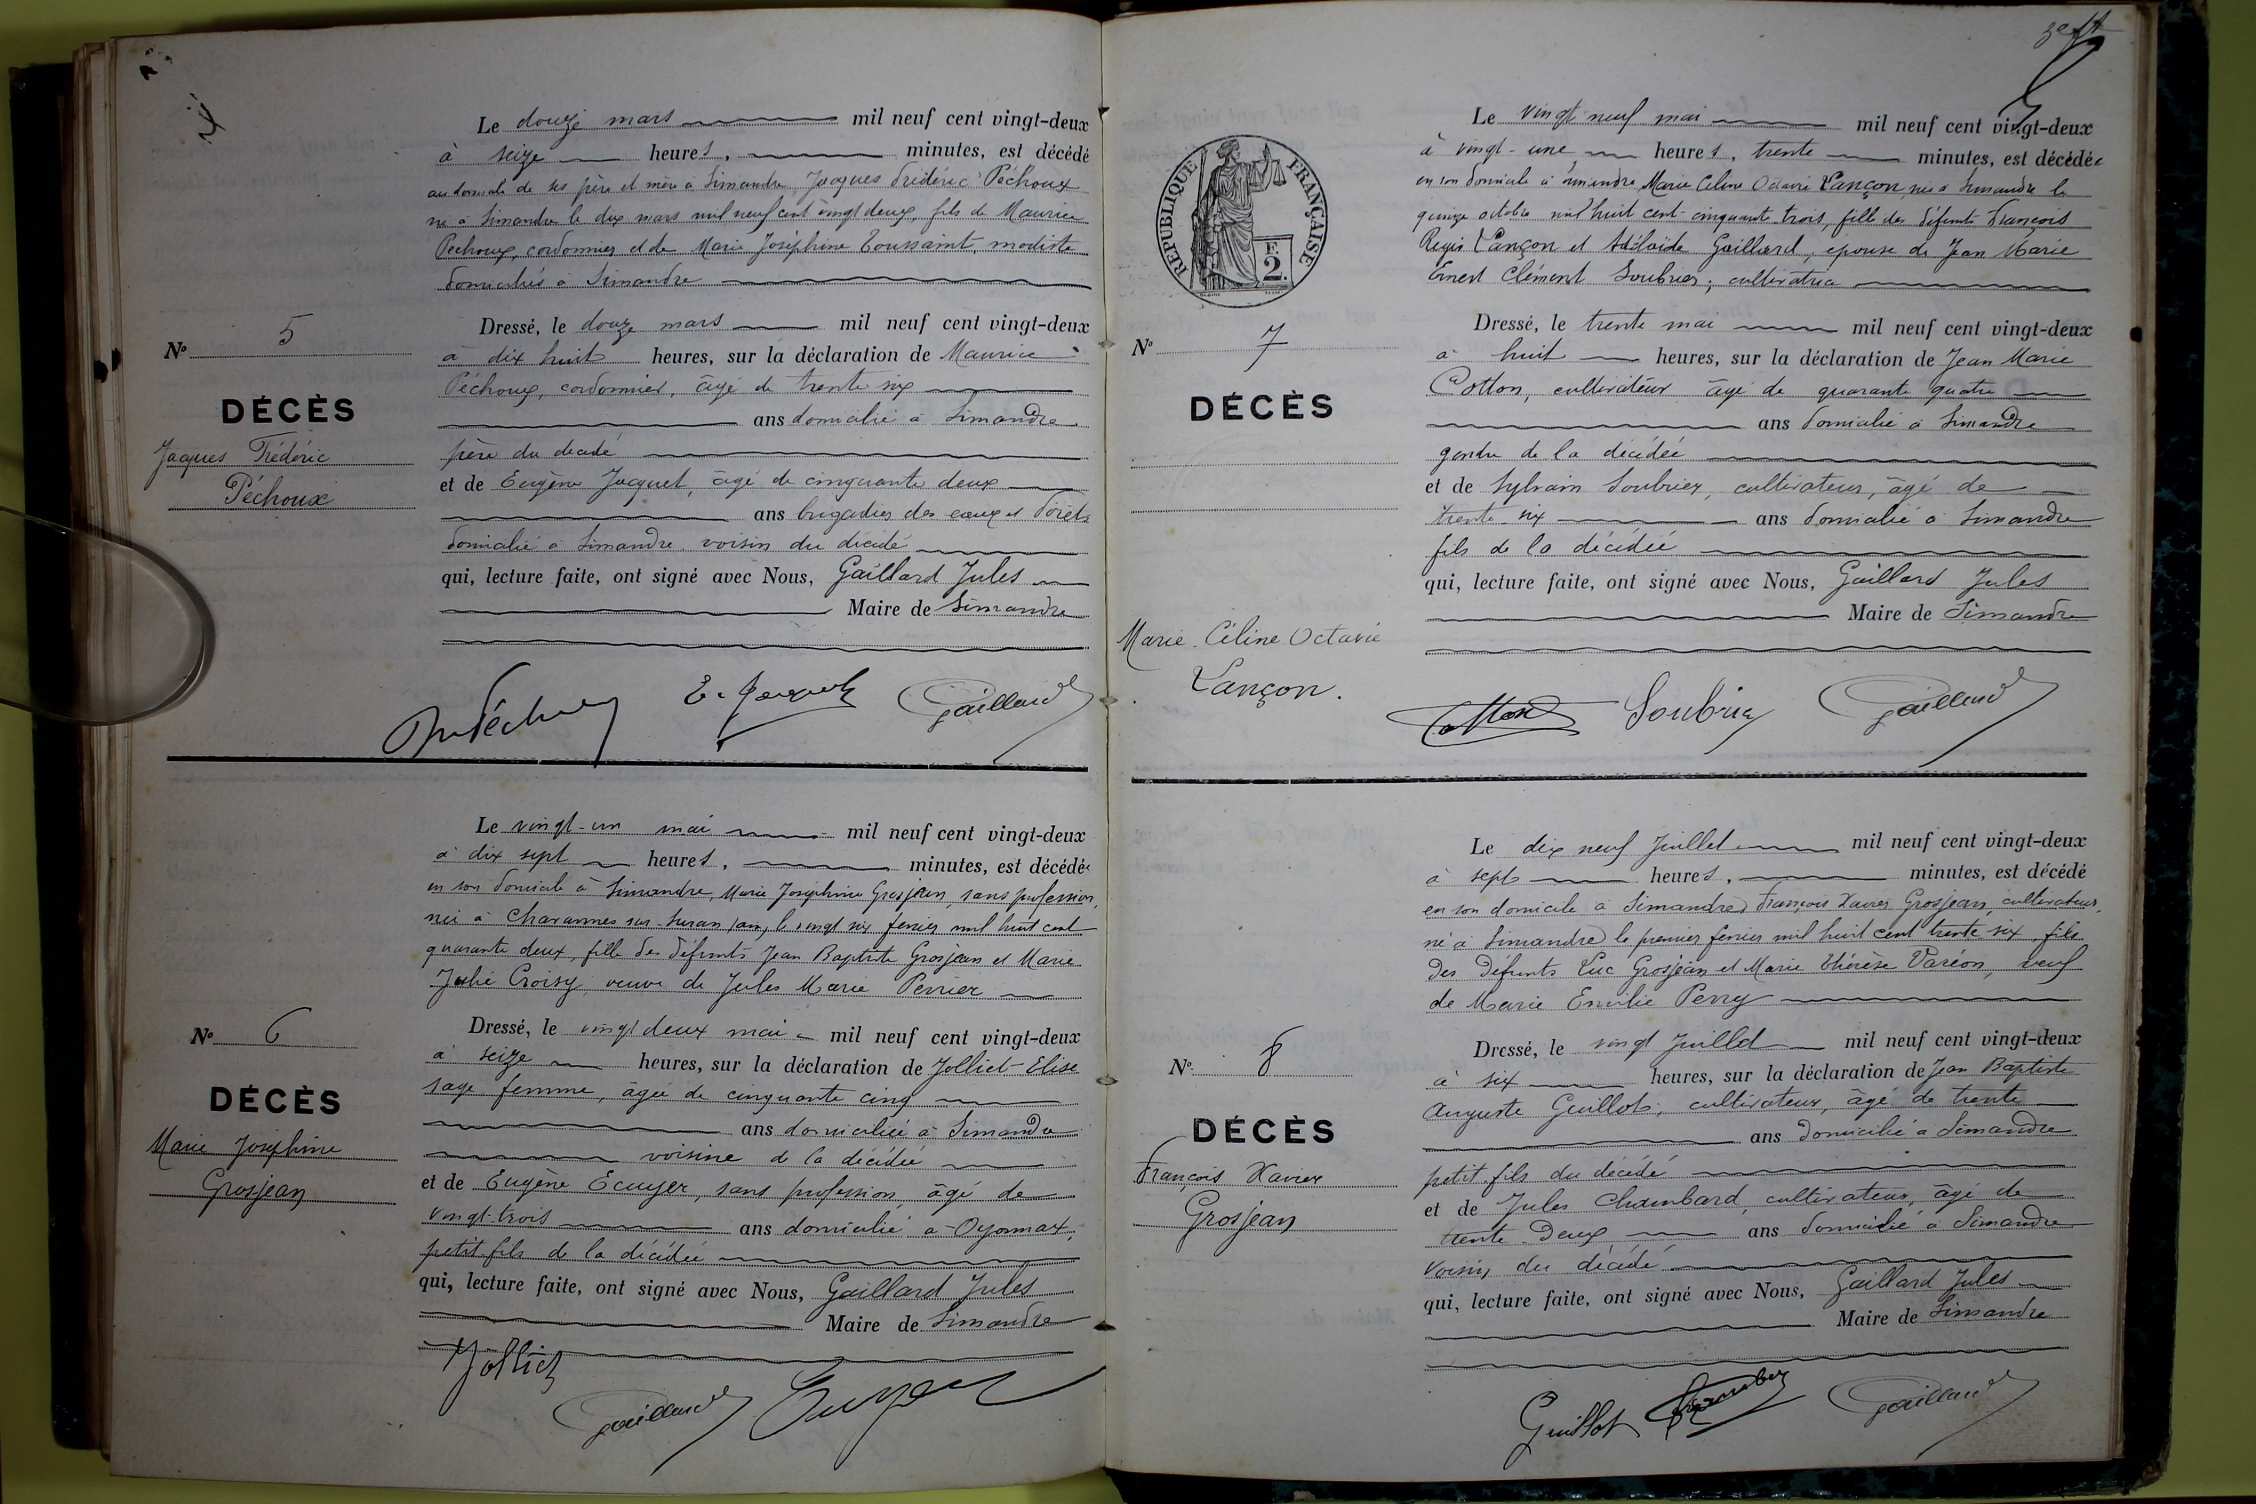 Le douze mars mil neuf cent vingt-deux
à seize heures, minutes, est décédé
au domicile de ses père et mère à Simandre, Jacques Frédéric Péchoux
né à Simandre le dix mars mil neuf cent vingt deux, fils de Maurice
Péchoux, cordonnier et de Marie Joséphine Toussaint, modiste
domiciliés à Simandre
N° 5
DÉCÈS
Jacques Frédéric
Péchoux
Dressé, le douze mars mil neuf cent vingt-deux
à dix huit heures, sur la déclaration de Maurice
Péchoux, cordonnier, âgé de trente six
ans domicilié à Simandre
père du décédé
et de Eugène Jacquet, âgé de cinquante deux
ans brigadier des eaux et forêts
domicilié à Simandre, voisin du décédé
qui, lecture faite, ont signé avec Nous, Gaillard Jules
Maire de Simandre
Péchoux E. Jacquet Gaillard
Le vingt-un mai mil neuf cent vingt-deux
à dix sept heures, minutes, est décédée
en son domicile à Simandre, Marie Joséphine Grosjean, sans profession,
née à Chavannes sur Suran, Ain, le vingt six février mil huit cent
quarante deux, fille des défunts Jean Baptiste Grosjean et Marie
Julie Croisy, veuve de Jules Marie Perrier
N° 6
DÉCÈS
Marie Joséphine
Grosjean
Dressé, le vingt deux mai mil neuf cent vingt-deux
à seize heures, sur la déclaration de Jolliet Elise
sage femme, âgée de cinquante cinq
ans domiciliée à Simandre
voisine de la décédée
et de Eugène Ecuyer, sans profession, âgé de
vingt-trois ans domicilié à Oyonnax,
petit-fils de la décédée
qui, lecture faite, ont signé avec Nous, Gaillard Jules
Maire de Simandre
Jolliet
Gaillard Ecuyer
RÉPUBLIQUE FRANÇAISE
F.
2.
Le vingt neuf mai mil neuf cent vingt-deux
à vingt-une heures, trente minutes, est décédée
en son domicile à Simandre, Marie Céline Octavie Lançon, née à Simandre le
quinze octobre mil huit cent cinquante trois, fille des défunts François
Régis Lançon et Adélaïde Gaillard, épouse de Jean Marie
Ernest Clément Soubrier, cultivatrice
N° 7
DÉCÈS
Marie Céline Octavie
Lançon.
Dressé, le trente mai mil neuf cent vingt-deux
à huit heures, sur la déclaration de Jean Marie
Cotton, cultivateur âgé de quarante quatre
ans domicilié à Simandre
gendre de la décédée
et de Sylvain Soubrier, cultivateur, âgé de
trente-six ans domicilié à Simandre
fils de la décédée
qui, lecture faite, ont signé avec Nous, Gaillard Jules
Maire de Simandre
Cotton Soubrier Gaillard
Le dix neuf Juillet mil neuf cent vingt-deux
à sept heures, minutes, est décédé
en son domicile à Simandre, François Xavier Grosjean, cultivateur,
né à Simandre le premier février mil huit cent trente six, fils
des défunts Luc Grosjean et Marie Thérèse Varéon, veuf
de Marie Emilie Perry
N° 8
DÉCÈS
François Xavier
Grosjean
Dressé, le vingt Juillet mil neuf cent vingt-deux
à six heures, sur la déclaration de Jean Baptiste
Auguste Guillot, cultivateur, âgé de trente
ans domicilié à Simandre
petit-fils du décédé
et de Jules Chambard, cultivateur, âgé de
trente-deux ans domicilié à Simandre
voisin du décédé
qui, lecture faite, ont signé avec Nous, Gaillard Jules
Maire de Simandre
Guillot Chambard Gaillard